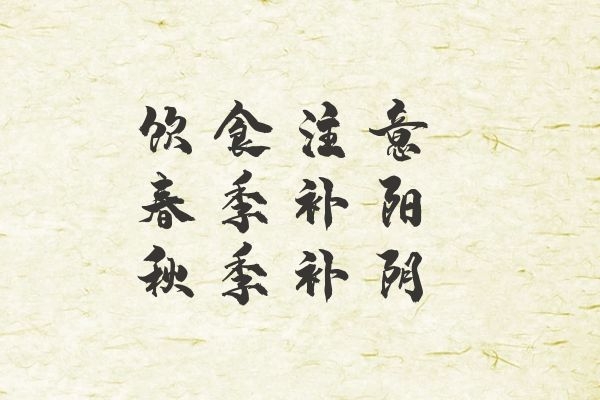 饮食注意
春季补阳
秋季补阴